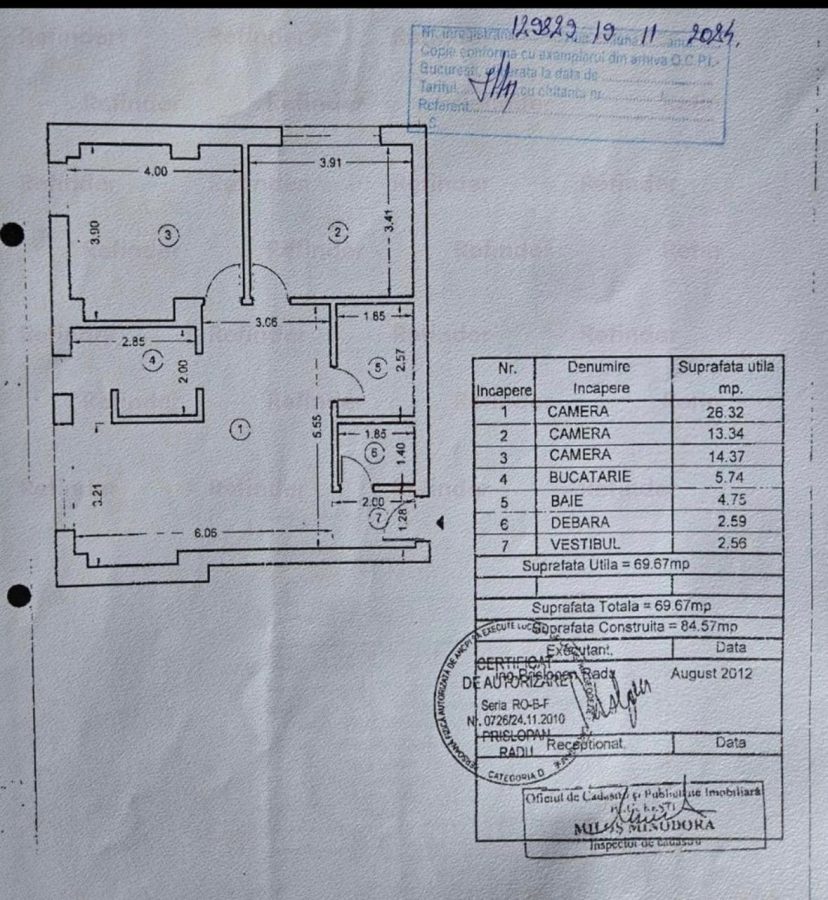 129829 19 11 2024.
Nr. inregistrare
Copie conforma cu exemplarul din arhiva O.C.P.I.-
Bucuresti, eliberata la data de
Tariful cu chitanta nr.
Referent
Refinder Refinder
Refinder
Refinder Refinder Refinder Refinder
Refinder Refinder Refinder
4.00
3.91
3.90
3
2
3.41
3.06
1.85
2.85
4
2.00
5
2.57
1
5.55
1.85
6
1.40
3.21
2.00
7
1.28
6.05
Nr. Incapere Denumire Incapere Suprafata utila mp.
1 CAMERA 26.32
2 CAMERA 13.34
3 CAMERA 14.37
4 BUCATARIE 5.74
5 BAIE 4.75
6 DEBARA 2.59
7 VESTIBUL 2.56
Suprafata Utila = 69.67mp
Suprafata Totala = 69.67mp
Suprafata Construita = 84.57mp
Executant, Data
Ing. Prislopan Radu August 2012
CERTIFICAT
DE AUTORIZARE
Seria RO-B-F
Nr. 0726/24.11.2010
PRISLOPAN
RADU
CATEGORIA D
Receptionat, Data
Oficiul de Cadastru și Publicitate Imobiliară
MILOS MINODORA
Inspector de cadastru